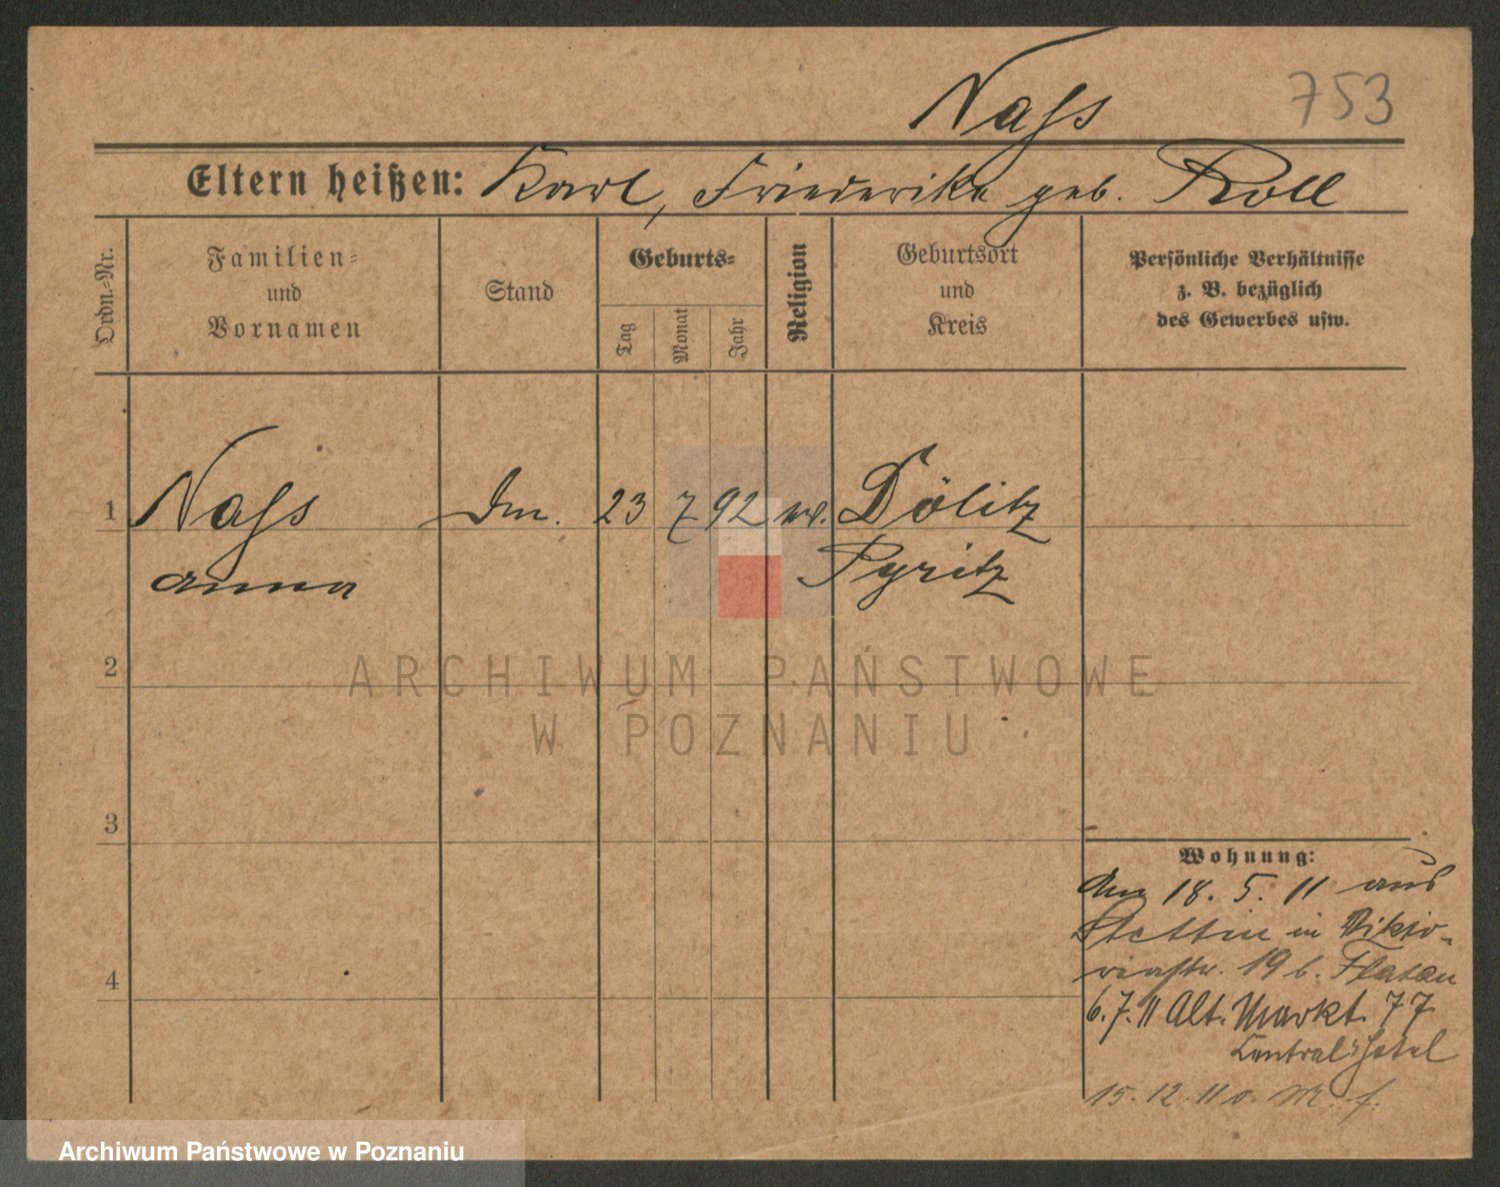 Nass
753
Eltern heißen: Karl, Friederike geb. Roll
Ordn.=Nr.
Familien=
und
Vornamen
Stand
Geburts=
Tag
Monat
Jahr
Religion
Geburtsort
und
Kreis
Persönliche Verhältnisse
z. B. bezüglich
des Gewerbes usw.
1 Nass 23 7 92 Dölitz
Anna Pyritz
2
ARCHIWUM PAŃSTWOWE
W POZNANIU
3
4
Wohnung:
Am 18. 5. 11 aus
Stettin in Vikto-
riastr. 19 b. Flatau
6. 7. 11 Alt. Markt. 77
Central Hotel
15. 12. 11 o. M. f.
Archiwum Państwowe w Poznaniu